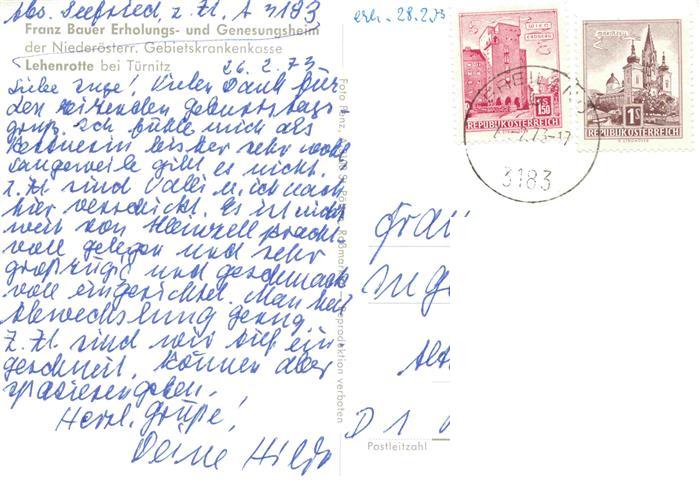 Abs. Seefried, z. Zt. A 3183
Franz Bauer Erholungs- und Genesungsheim
der Niederösterr. Gebietskrankenkasse
Lehenrotte bei Türnitz
26.2.73
Liebe Inge! Vielen Dank für
den reizenden Geburtstags
gruß. Ich fühle mich als
Rentnerin bisher sehr wohl
Langeweile gibt es nicht.
z. Zt. sind Valli u. ich nach
hier verschickt. Es ist nicht
weit von Hainzell pracht
voll gelegen und sehr
großzügig und geschmack
voll eingerichtet. Man hat
Abwechslung genug.
Z. Zt. sind wir tief ein
geschneit, können aber
spazierengehen.
Herzl. Grüße!
Deine Hilde
erh. 28.2.73
WIEN
ERDBERG
S
1.50
REPUBLIK ÖSTERREICH
MARIAZELL
1S
REPUBLIK ÖSTERREICH
73-17
3183
Frau
Inge
Alt
D 1 0
Postleitzahl
Reproduktion verboten